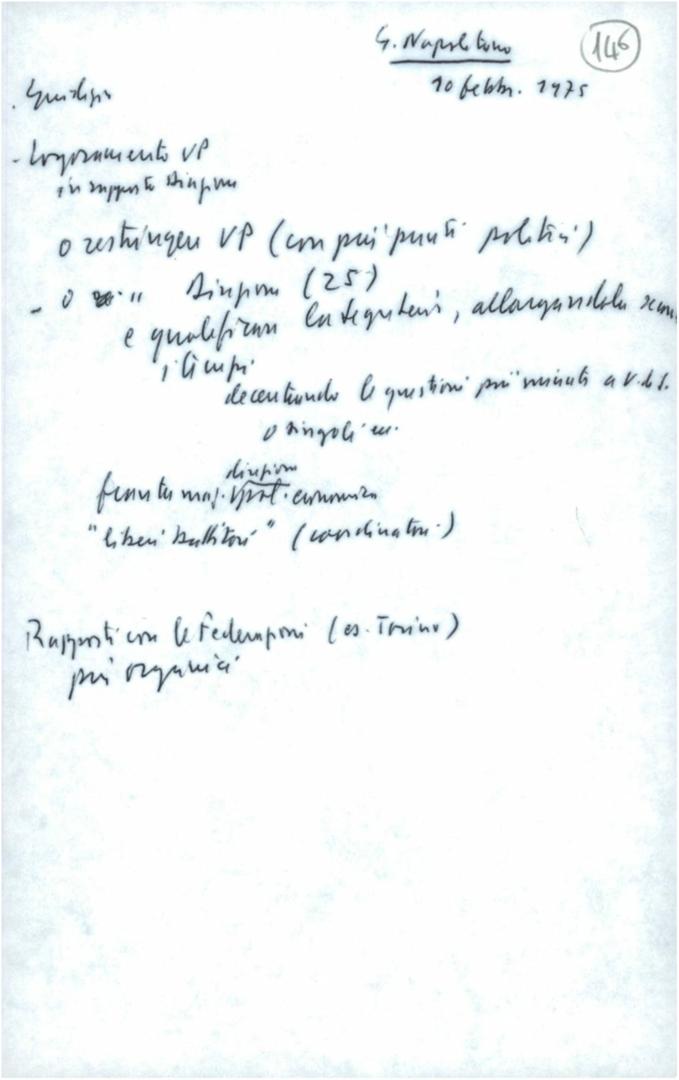 G. Napolitano
146
10 febbr. 1975
- Logoramento VP
in rapporto Direzione
o restringere VP (con più punti politici)
- o " Direzione (25)
e qualificare la segreteria, allargandola
i tempi
decentrando le questioni più minute a V. di S.
o singoli
direzione
economica
"liberi battitori" (coordinatori)
Rapporti con le Federazioni (es. Torino)
più organici